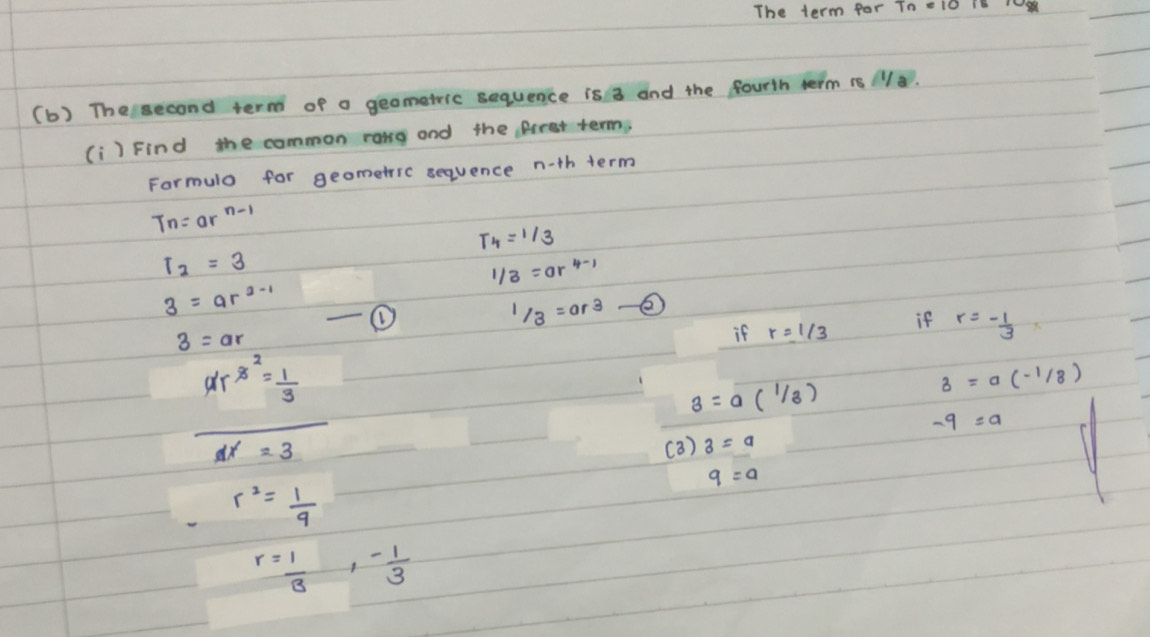 The term for Tn = 10 is
(b) The second term of a geometric sequence is 3 and the fourth term is 1/3.
(i) Find the common ratio and the first term.
Formula for geometric sequence n-th term
Tn = ar^n-1
T2 = 3
3 = ar^2-1
3 = ar — ①
T4 = 1/3
1/3 = ar^4-1
1/3 = ar3 — ②
ar^3 2 = 1/3
ar = 3
r² = 1/9
r = 1/3 , -1/3
if r = 1/3
3 = a (1/3)
(3) 3 = a
9 = a
if r = -1/3
3 = a (-1/3)
-9 = a